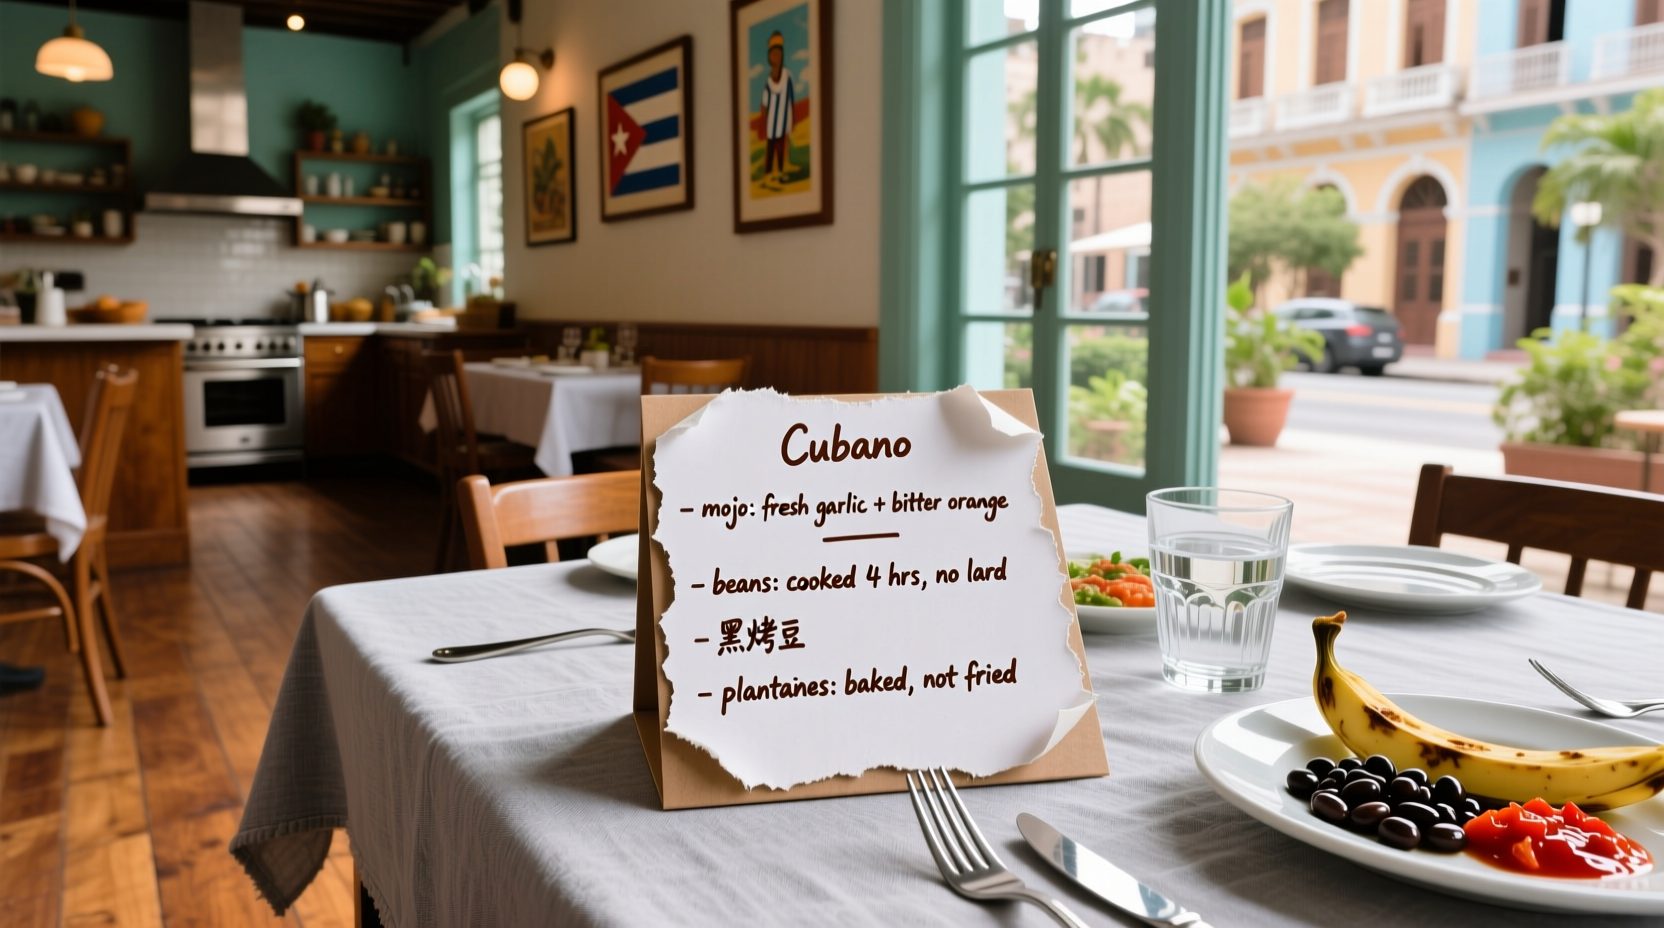 Cubano
- mojo: fresh garlic + bitter orange
- beans: cooked 4 hrs, no lard
- 黑烤豆
- plantaines: baked, not fried